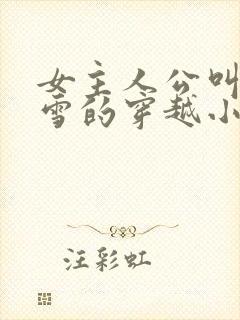 女主人公叫
雪的穿越小
汪彩虹